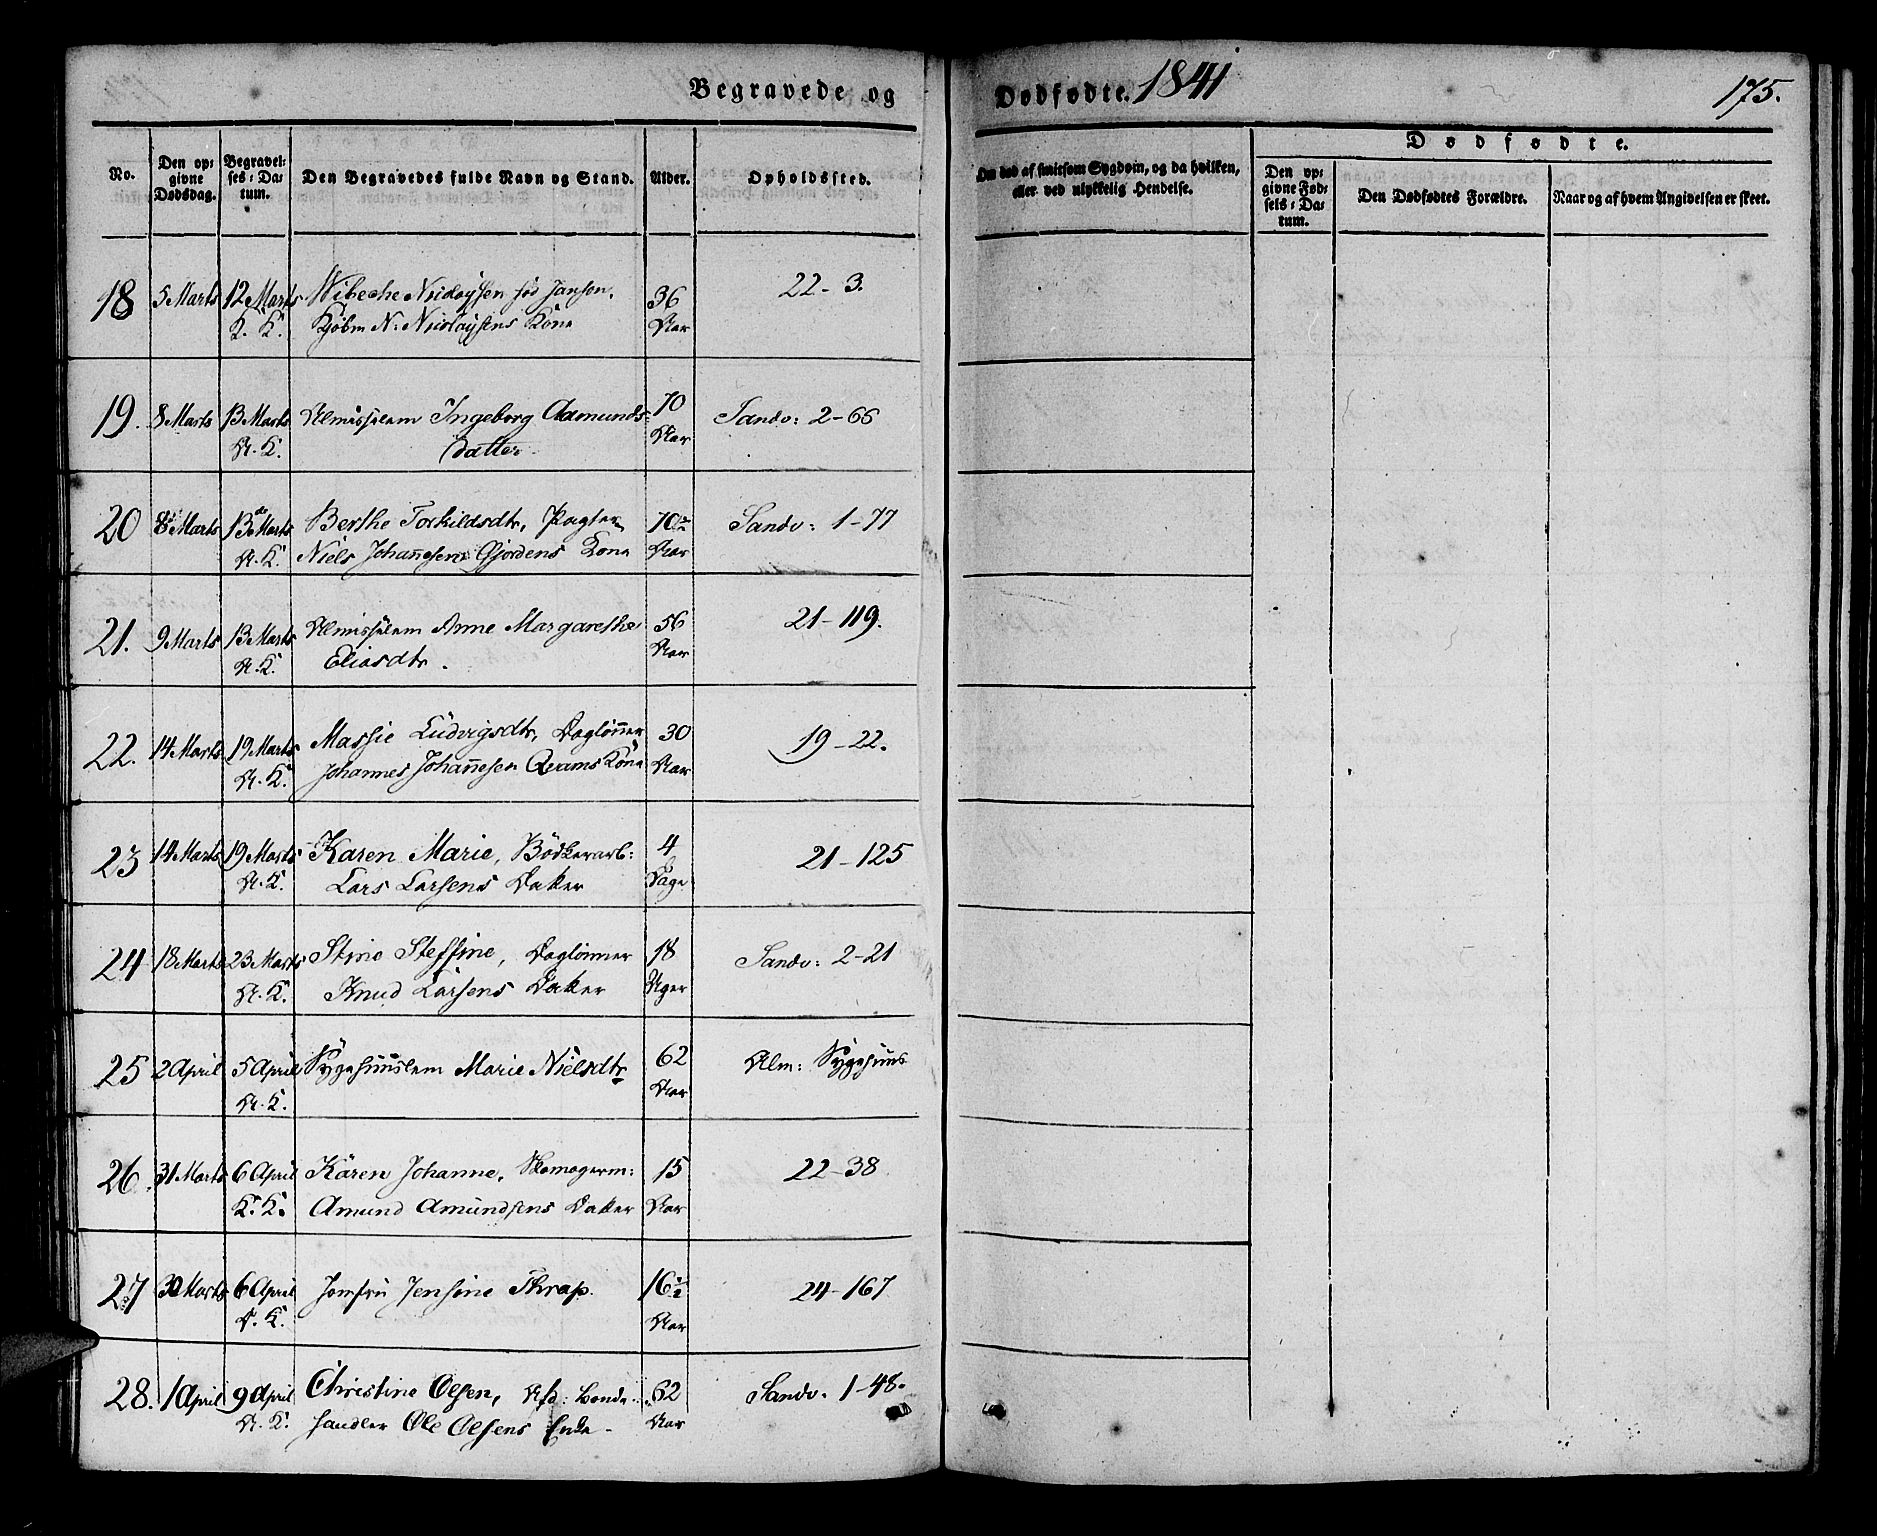 Begravede og Dødfødte. 1841
175.
No.
Den op-
givne
Dødsdag.
Begravel-
ses-Da-
tum.
Den Begravedes fulde Navn og Stand.
Alder.
Opholdssted.
Om død af smitsom Sygdom, og da hvilken,
eller ved ulykkelig Hendelse.
Dødfødte.
Den op-
givne Fød-
sels-Da-
tum.
Den Dødfødtes Forældre.
Naar og af hvem Angivelsen er skeet.
18 5 Marts 12 Marts Wibeche Nicolaysen fød Janson, 36 22-3.
K. K. Kjøbm N: Nicolaysens Kone Aar
19. 8 Marts 13 Marts Almisselem Ingeborg Aamunds- 70 Sandv: 2-66
N. K. datter Aar
20 8 Marts 13 Marts Berthe Torkildsdtr, Pagter 70½ Sandv: 1-77
N. K. Niels Johannesen Gjordens Kone Aar
21. 9 Marts 13 Marts Almisselem Anne Margarethe 56 21-119.
N. K. Eliasdtr. Aar
22. 14 Marts 19 Marts Massie Ludvigsdtr, Daglønner 30 19-22.
N. K. Johannes Johannesen Qvams Kone Aar
23 14 Marts 19 Marts Karen Marie, Bødkerarb: 4 21-125
N. K. Lars Larsens Datter Dage
24 18 Marts 23 Marts Stine Steffine, Daglønner 18 Sandv: 2-21
N. K. Knud Larsens Datter Uger
25 2 April 5 April Sygehuuslem Marie Nielsdtr 62 Alm: Sygehuus
N. K. Aar
26. 31 Marts 6 April Karen Johanne, Skomagerm: 15 22-38
K. K. Amund Amundsens Datter Aar
27 30 Marts 6 April Jomfru Jensine Thrap. 16½ 24-167
D. K. Aar
28. 1 April 9 April Christine Olsen, Afd: Bonde- 62 Sandv. 1-48.
N. K. handler Ole Olsens Enke. Aar